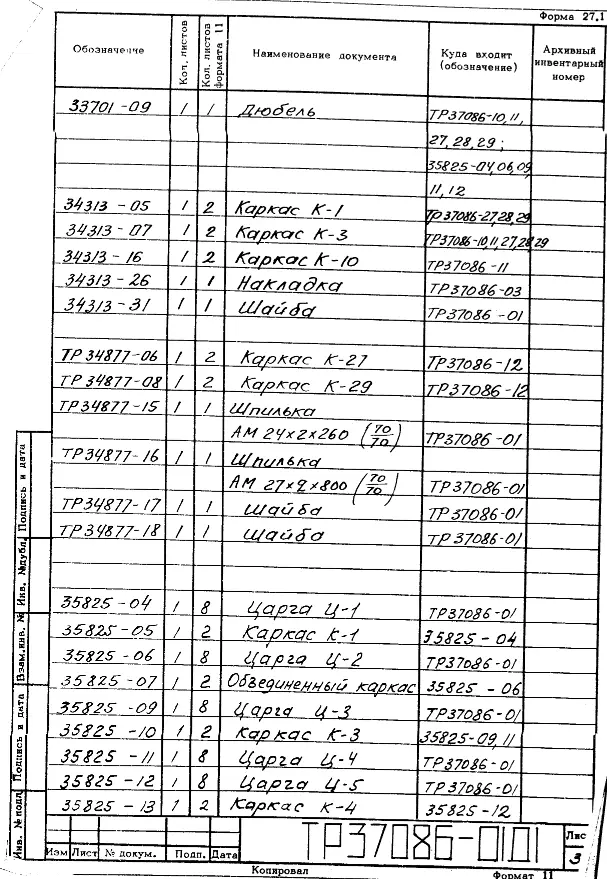 Форма 27.1
Обозначение Кол. листов Кол. листов формата 11 Наименование документа Куда входит (обозначение) Архивный инвентарный номер
33701-09 1 1 Дюбель ТР37086-10,11,
27,28,29;
35825-04,06,09
11,12
34313-05 1 2 Каркас К-1 ТР37086-27,28,29
34313-07 1 2 Каркас К-3 ТР37086-10,11,27,28,29
34313-16 1 2 Каркас К-10 ТР37086-11
34313-26 1 1 Накладка ТР37086-03
34313-31 1 1 Шайба ТР37086-01
ТР34877-06 1 2 Каркас К-27 ТР37086-12
ТР34877-08 1 2 Каркас К-29 ТР37086-12
ТР34877-15 1 1 Шпилька
АМ 24×2×260 (70/70) ТР37086-01
ТР34877-16 1 1 Шпилька
АМ 27×2×800 (70/70) ТР37086-01
ТР34877-17 1 1 Шайба ТР37086-01
ТР34877-18 1 1 Шайба ТР37086-01
35825-04 1 8 Царга Ц-1 ТР37086-01
35825-05 1 2 Каркас К-1 35825-04
35825-06 1 8 Царга Ц-2 ТР37086-01
35825-07 1 2 Объединенный каркас 35825-06
35825-09 1 8 Царга Ц-3 ТР37086-01
35825-10 1 2 Каркас К-3 35825-09,11
35825-11 1 8 Царга Ц-4 ТР37086-01
35825-12 1 8 Царга Ц-5 ТР37086-01
35825-13 1 2 Каркас К-4 35825-12
Инв. № подл. Подпись и дата Взам.инв. № Инв. № дубл. Подпись и дата
ТР37086-0101 Лис
3
Изм Лист № докум. Подп. Дата
Копировал Формат 11